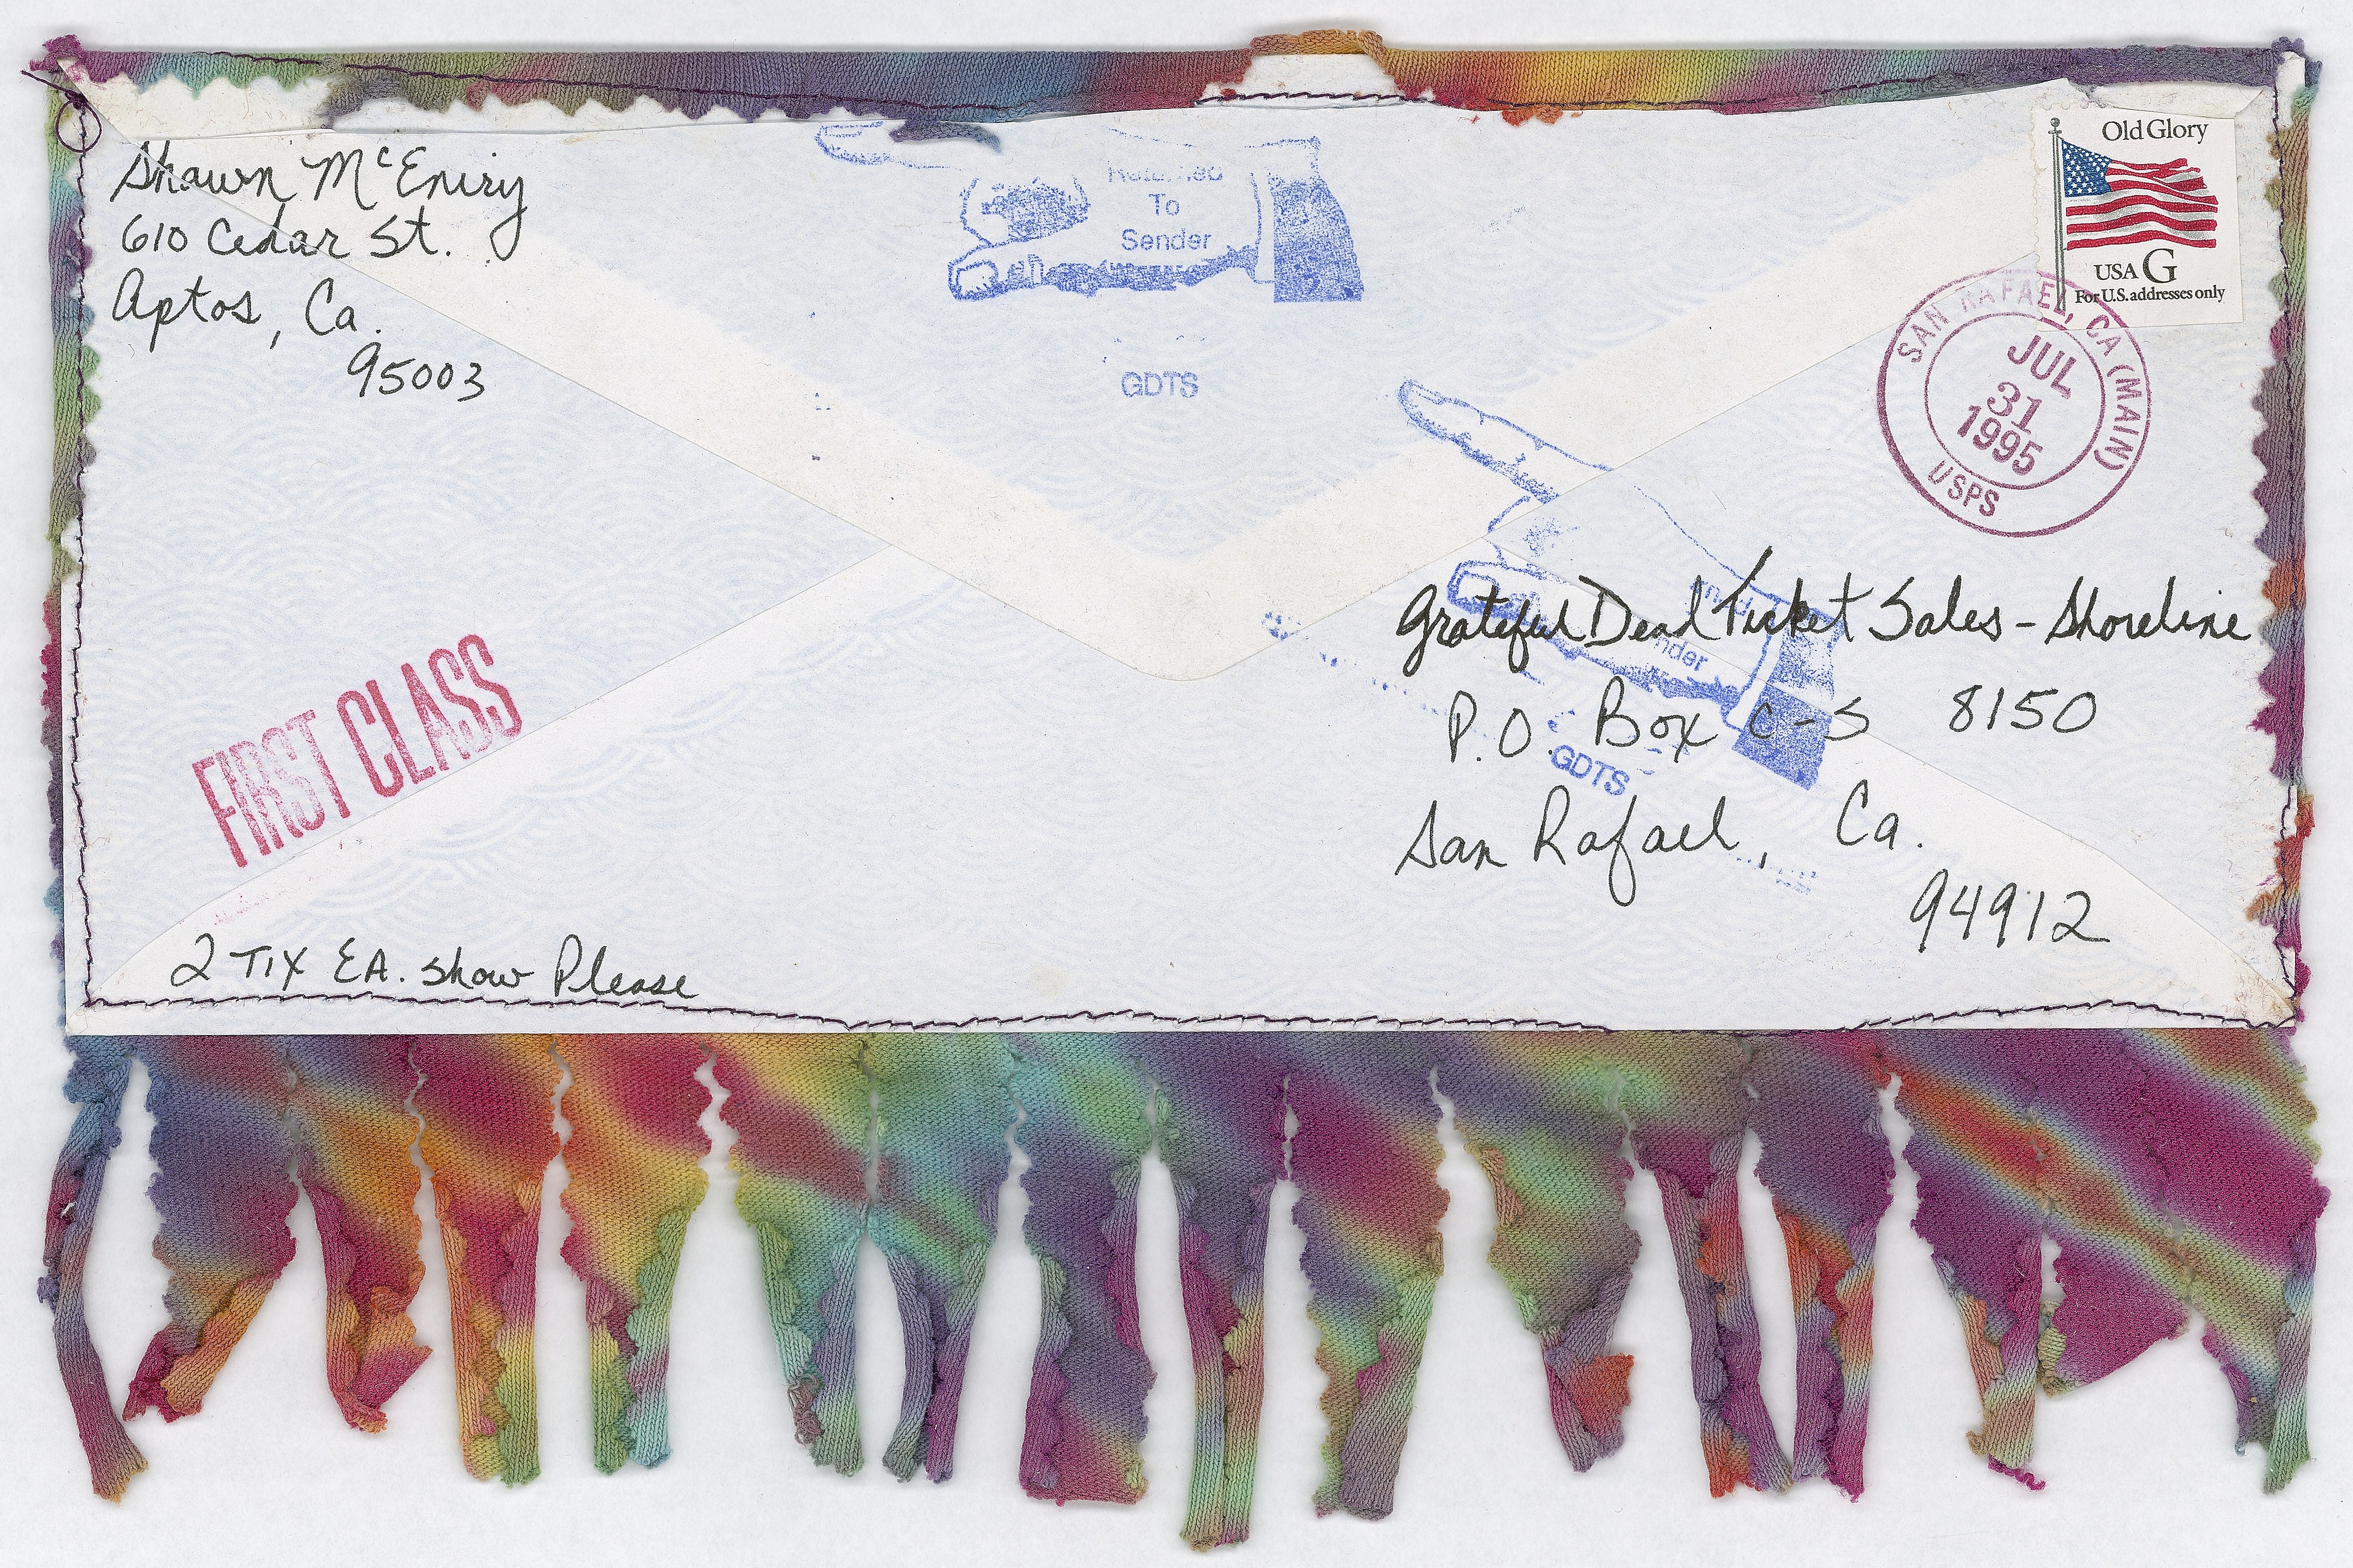 Shawn McEniry
610 Cedar St.
Aptos, Ca.
95003
Returned
To
Sender
GDTS
Old Glory
USA G
For U.S. addresses only
SAN RAFAEL, CA (MAIN)
JUL
31
1995
USPS
Grateful Dead Ticket Sales - Shoreline
P.O. Box C-S 8150
San Rafael, Ca.
94912
nder
GDTS
FIRST CLASS
2 TIX EA. show Please